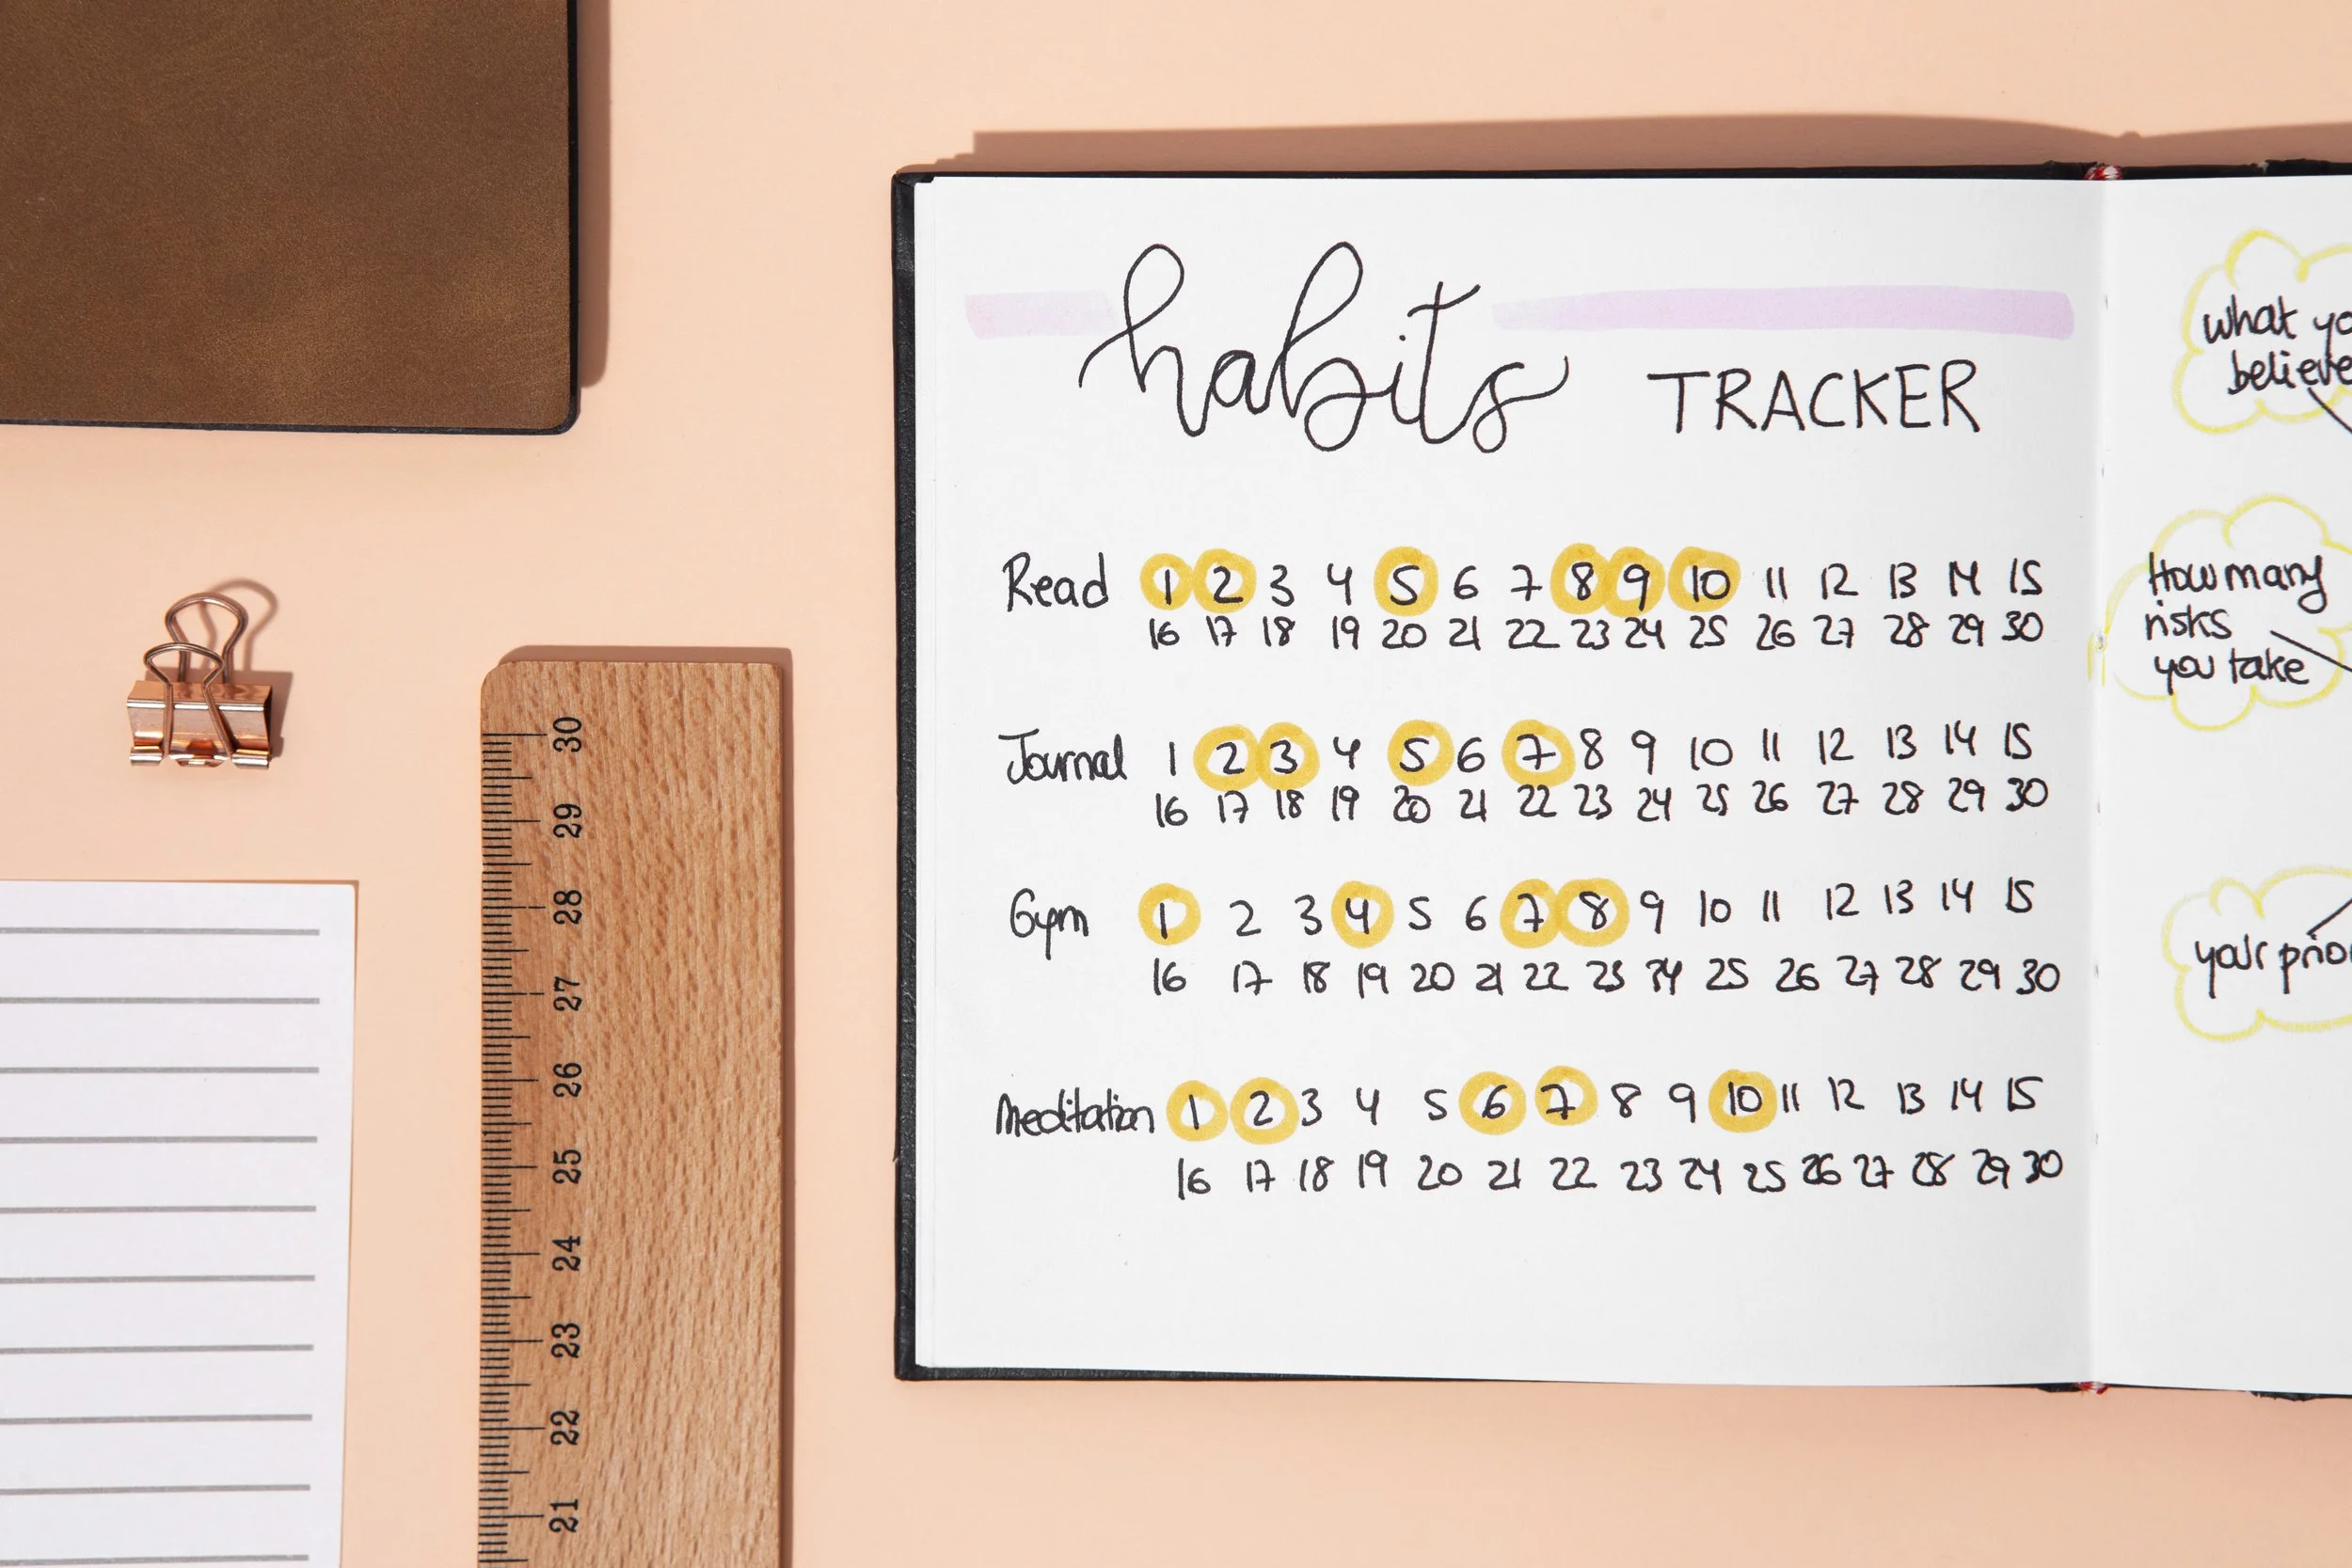 habits TRACKER
Read 1 2 3 4 5 6 7 8 9 10 11 12 13 14 15
16 17 18 19 20 21 22 23 24 25 26 27 28 29 30
Journal 1 2 3 4 5 6 7 8 9 10 11 12 13 14 15
16 17 18 19 20 21 22 23 24 25 26 27 28 29 30
Gym 1 2 3 4 5 6 7 8 9 10 11 12 13 14 15
16 17 18 19 20 21 22 23 24 25 26 27 28 29 30
Meditation 1 2 3 4 5 6 7 8 9 10 11 12 13 14 15
16 17 18 19 20 21 22 23 24 25 26 27 28 29 30
what yo
believe
How many
risks
you take
your prio
30
29
28
27
26
25
24
23
22
21